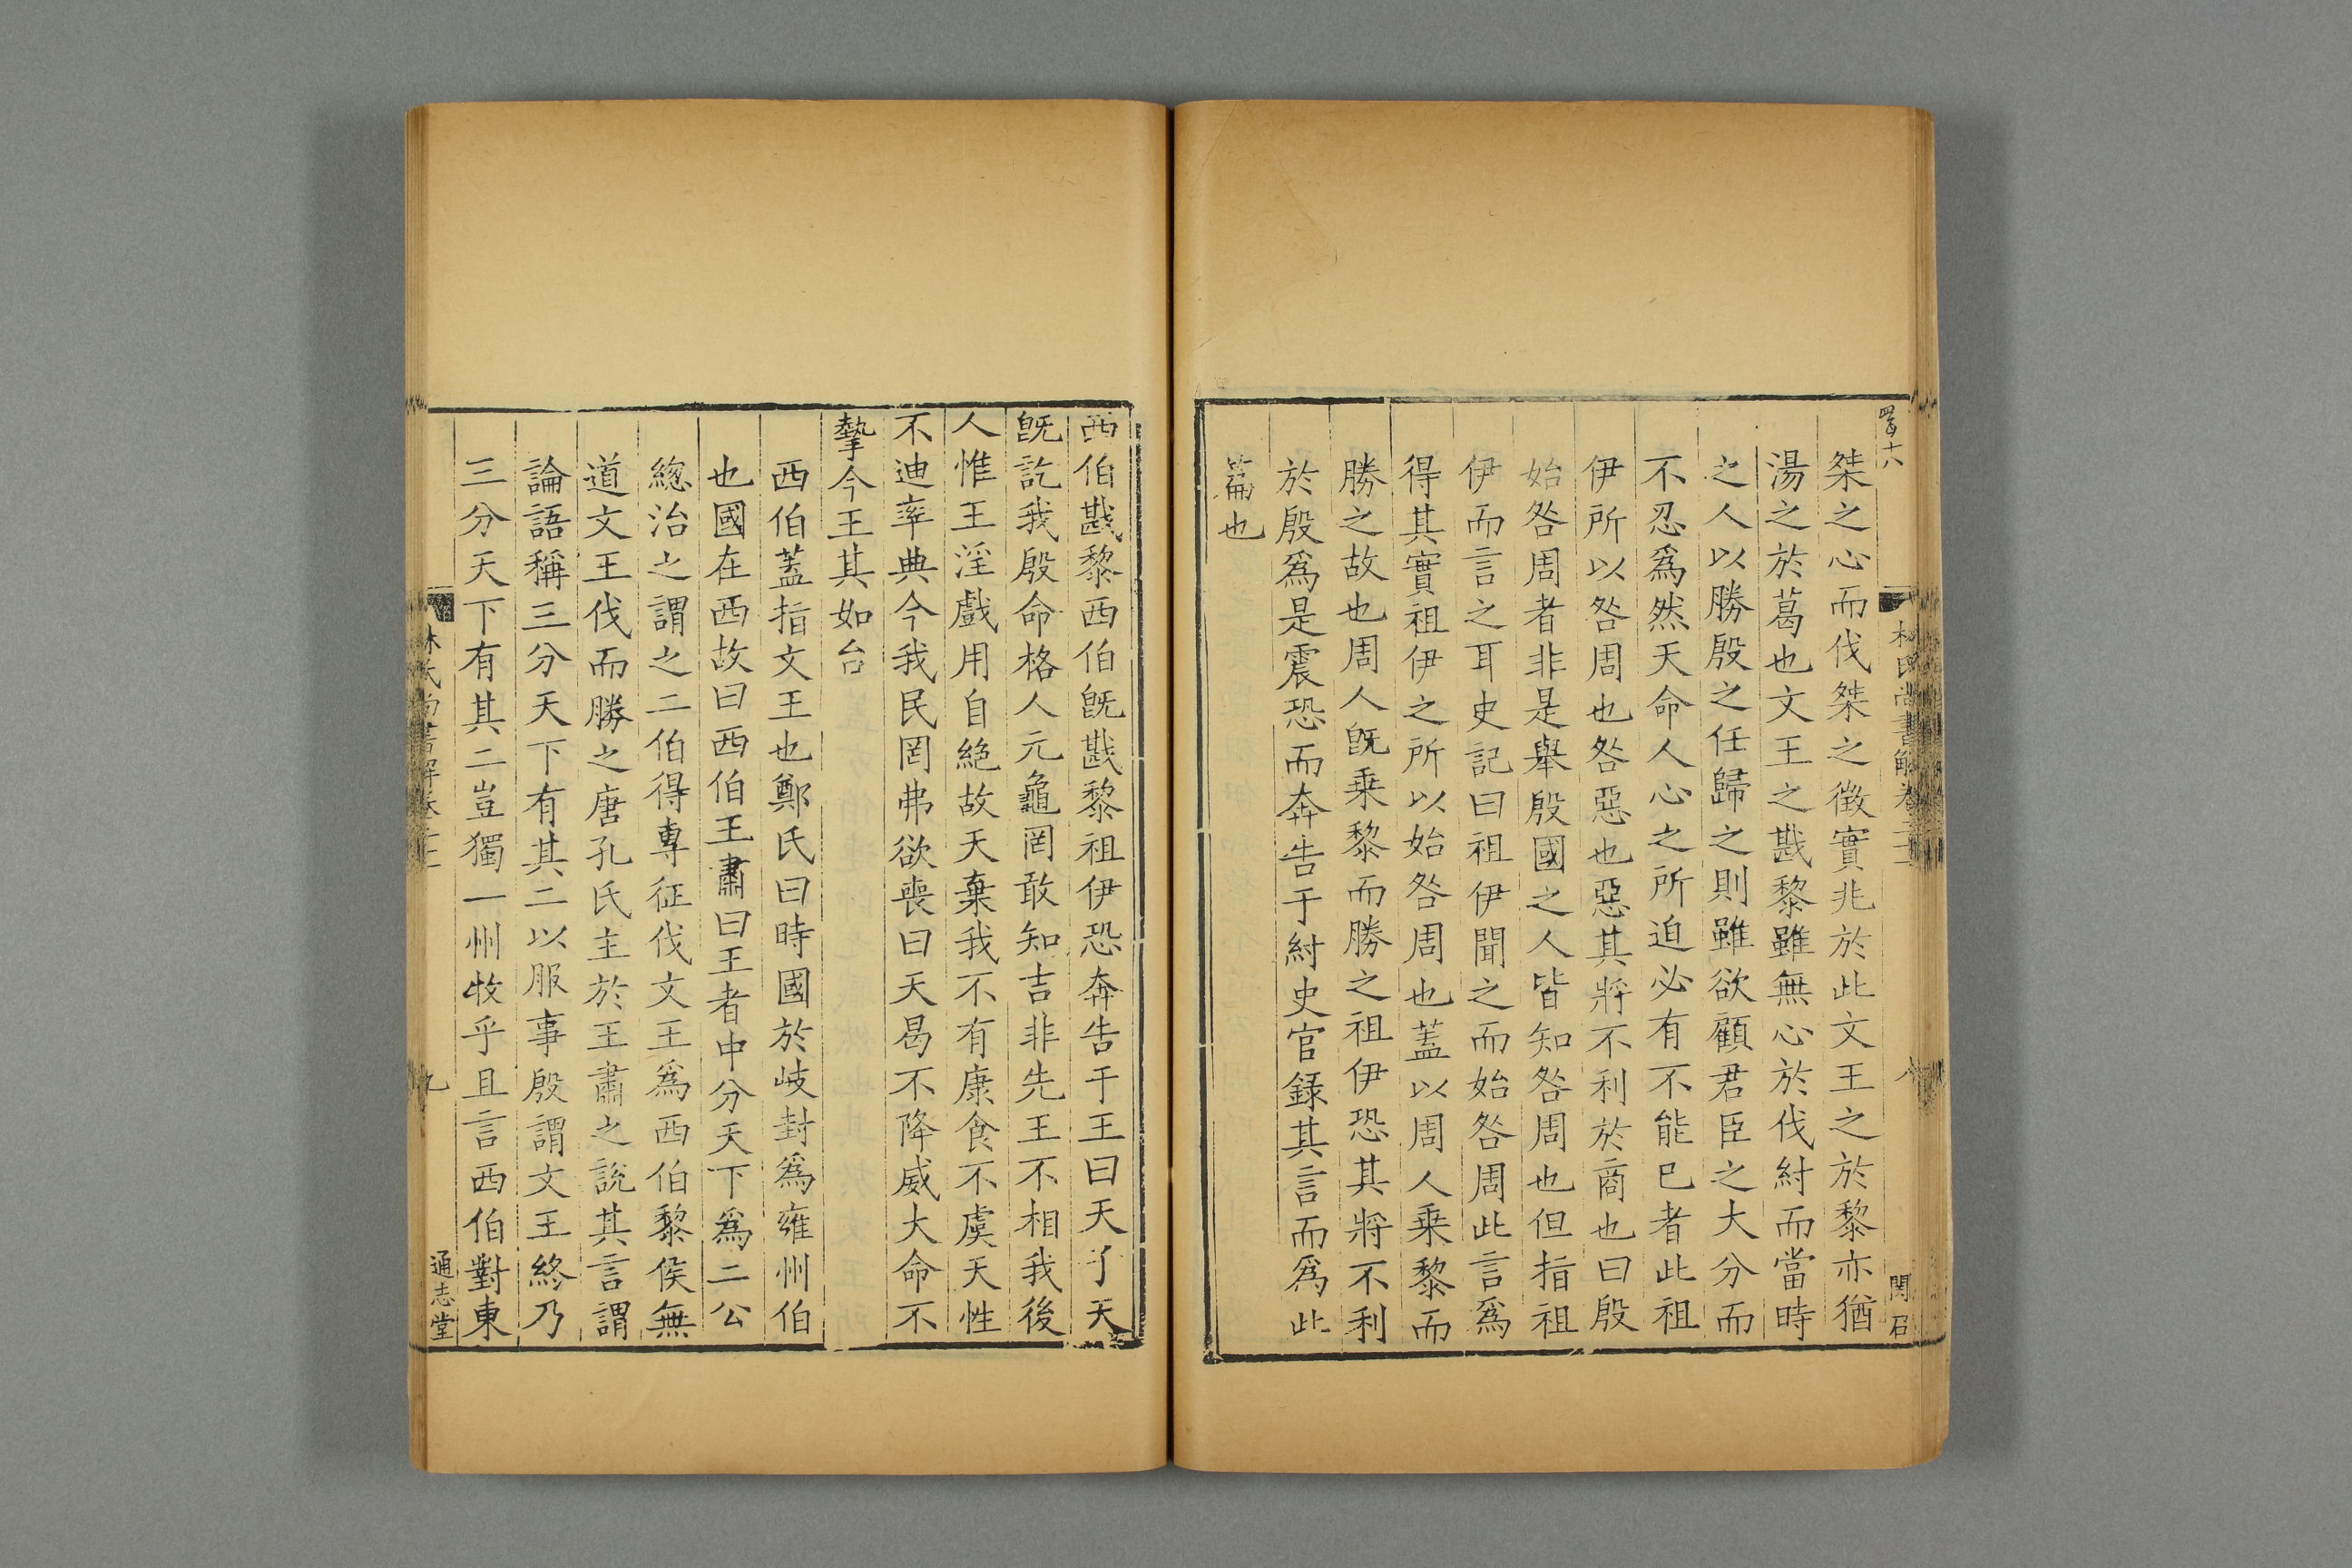 桀之心而伐桀之徵實兆於此文王之於黎亦猶
湯之於葛也文王之戡黎雖無心於伐紂而當時
之人以勝殷之任歸之則雖欲顧君臣之大分而
不忍爲然天命人心之所迫必有不能已者此祖
伊所以咎周也咎惡也惡其將不利於商也曰殷
始咎周者非是舉殷國之人皆知咎周也但指祖
伊而言之耳史記曰祖伊聞之而始咎周此言爲
得其實祖伊之所以始咎周也蓋以周人乗黎而
勝之故也周人旣乗黎而勝之祖伊恐其將不利
於殷爲是震恐而奔告于紂史官録其言而爲此
篇也
西伯戡黎西伯旣戡黎祖伊恐奔告于王曰天子天
旣訖我殷命格人元龜罔敢知吉非先王不相我後
人惟王淫戲用自絕故天棄我不有康食不虞天性
不迪率典今我民罔弗欲喪曰天曷不降威大命不
摯今王其如台
西伯蓋指文王也鄭氏曰時國於岐封爲雍州伯
也國在西故曰西伯王肅曰王者中分天下爲二公
緫治之謂之二伯得專征伐文王爲西伯黎侯無
道文王伐而勝之唐孔氏主於王肅之說其言謂
論語稱三分天下有其二以服事殷謂文王終乃
三分天下有其二豈獨一州牧乎且言西伯對東
林氏尚書解卷二十
九
通志堂